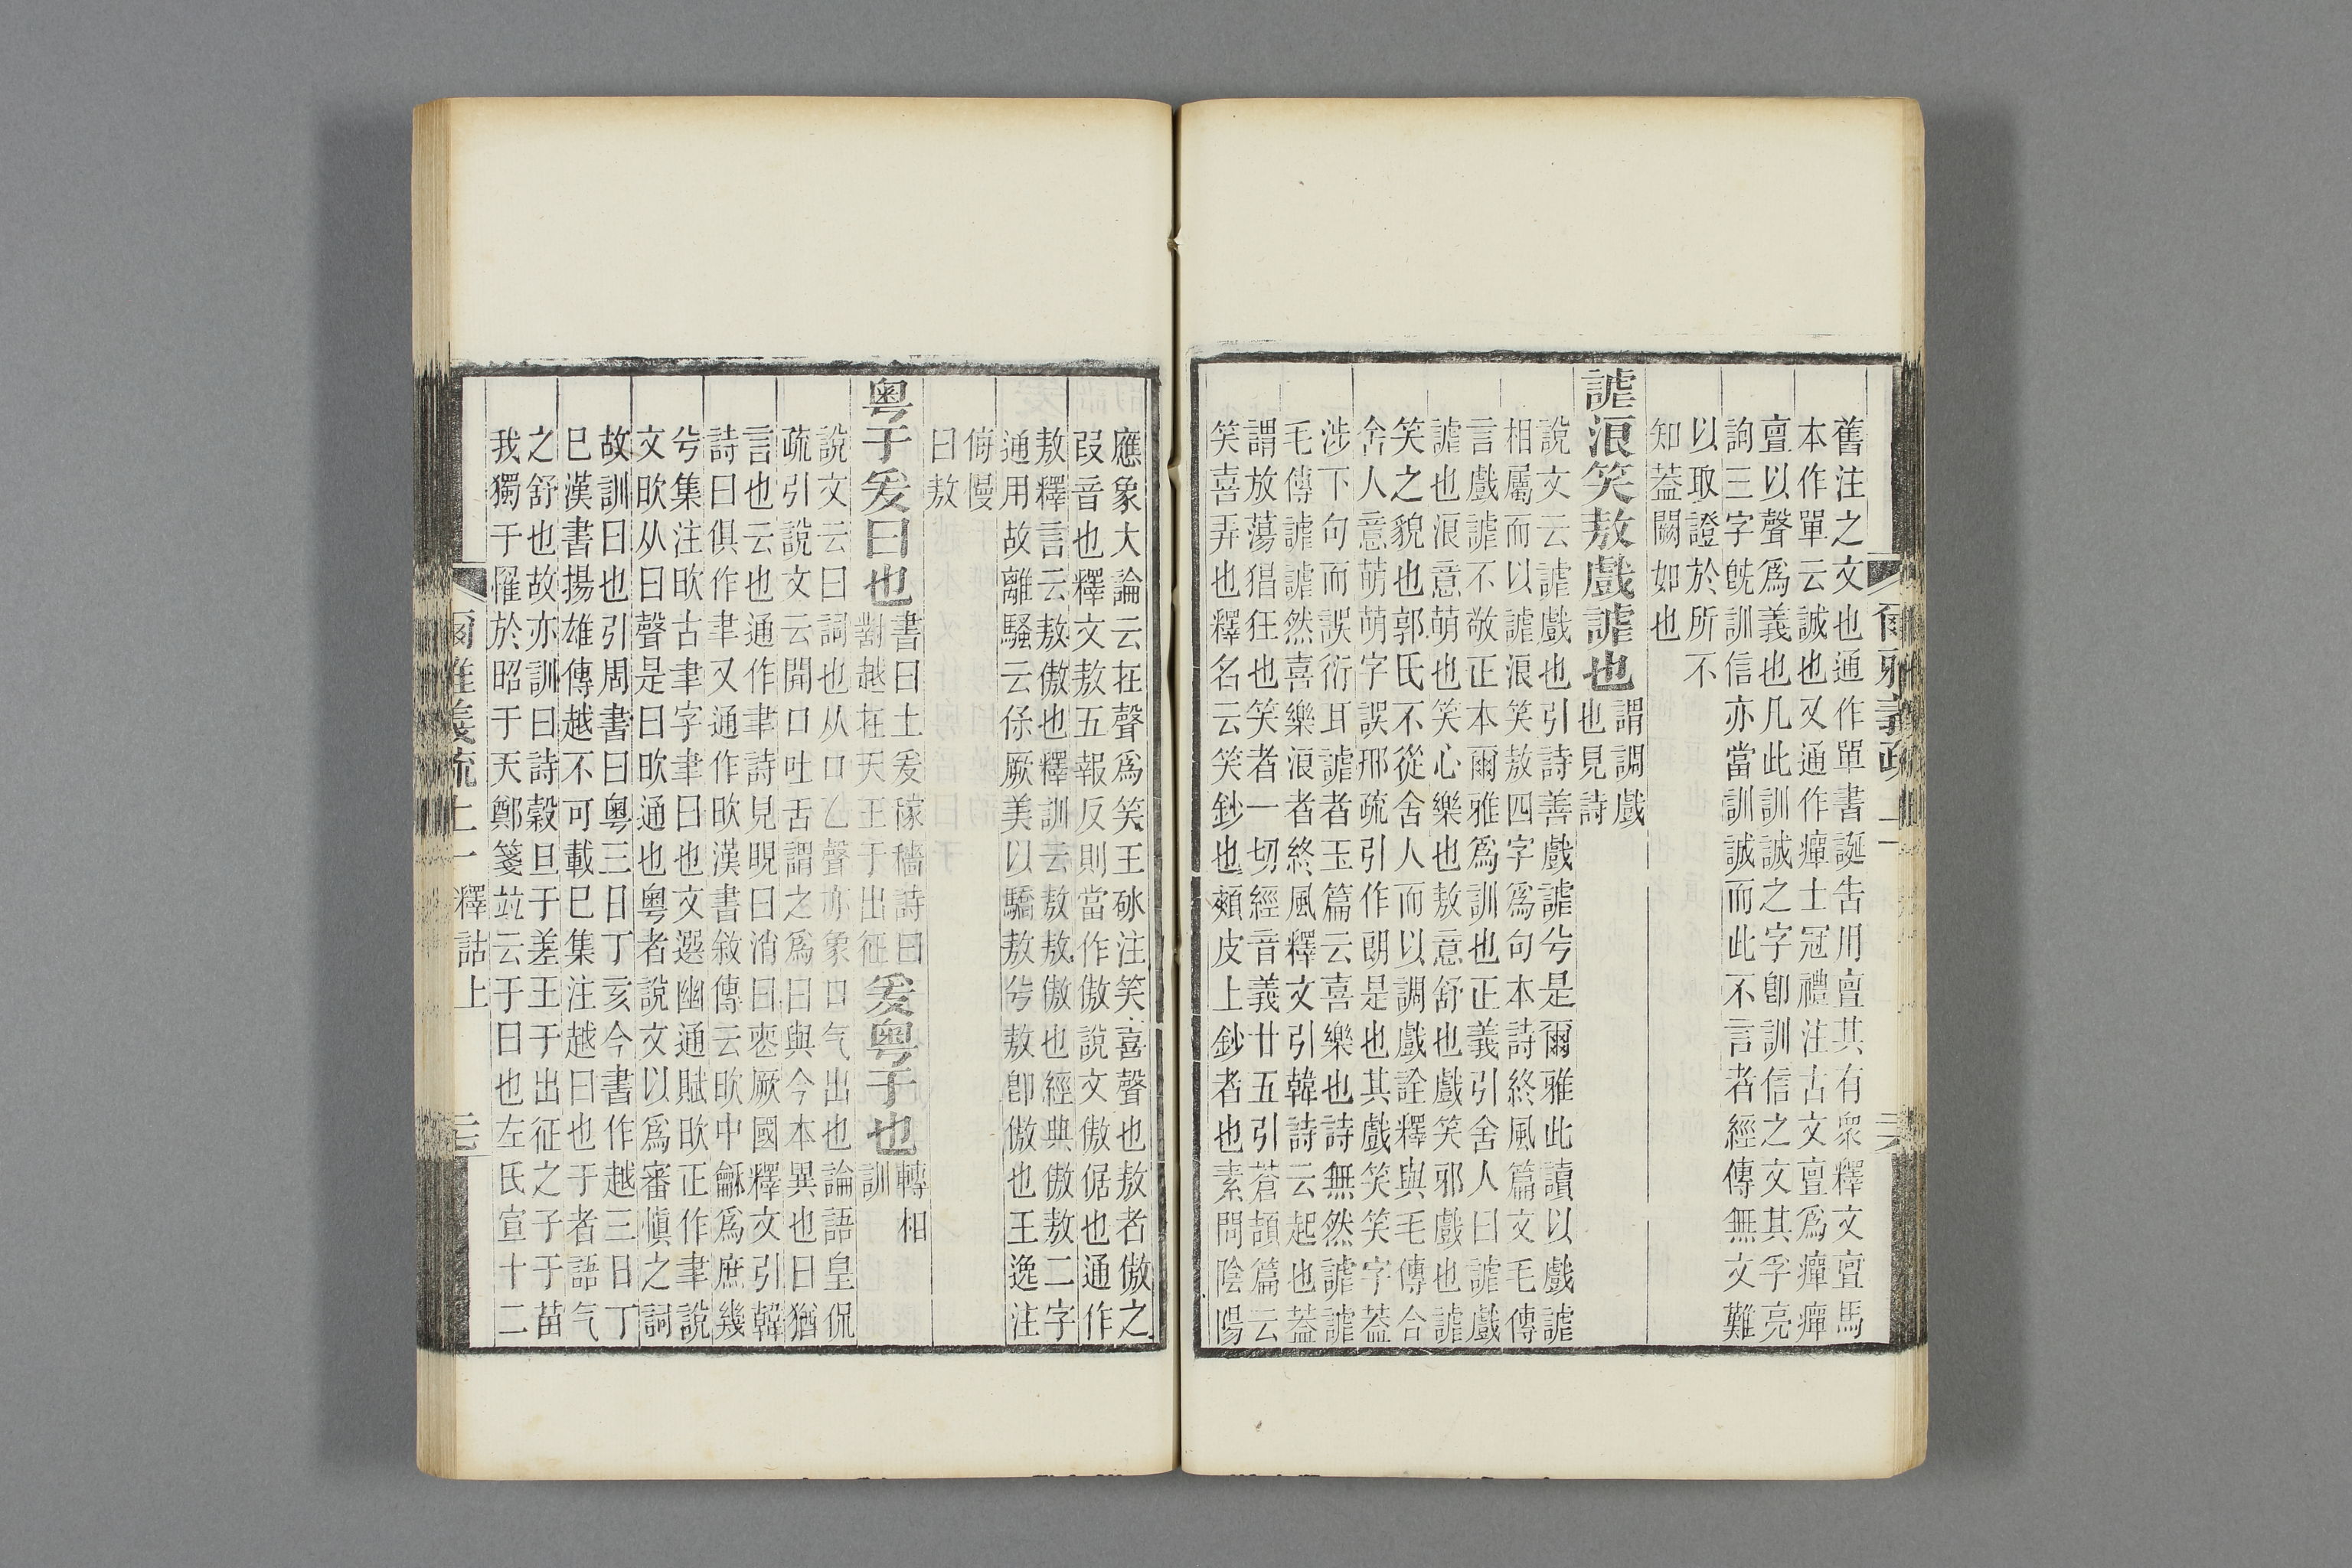 爾雅義疏上一
舊注之文也通作單書誕告用亶其有衆釋文亶馬
本作單云誠也又通作癉士冠禮注古文亶爲癉癉
亶以聲爲義也凡此訓誠之字卽訓信之文其孚亮
詢三字旣訓信亦當訓誠而此不言者經傳無文難
以取證於所不
知葢闕如也
謔浪笑敖戲謔也
謂調戲
也見詩
說文云謔戲也引詩善戲謔兮是爾雅此讀以戲謔
相屬而以謔浪笑敖四字爲句本詩終風篇文毛傳
言戲謔不敬正本爾雅爲訓也正義引舍人曰謔戲
謔也浪意萌也笑心樂也敖意舒也戲笑邪戲也謔
笑之貌也郭氏不從舍人而以調戲詮釋與毛傳合
舍人意萌萌字誤邢疏引作朗是也其戲笑笑字葢
涉下句而誤衍耳謔者玉篇云喜樂也詩無然謔謔
毛傳謔謔然喜樂浪者終風釋文引韓詩云起也葢
謂放蕩猖狂也笑者一切經音義廿五引蒼頡篇云
笑喜弄也釋名云笑鈔也頰皮上鈔者也素問陰陽
應象大論云在聲爲笑王砅注笑喜聲也敖者傲之
叚音也釋文敖五報反則當作傲說文傲倨也通作
敖釋言云敖傲也釋訓云敖敖傲也經典傲敖二字
通用故離騷云保厥美以驕敖兮敖卽傲也王逸注
侮慢
曰敖
粵于爰曰也
書曰土爰稼穡詩曰
對越在天王于出征
爰粵于也
轉相
訓
說文云曰詞也从口乙聲亦象口气出也論語皇侃
疏引說文云開口吐舌謂之爲曰與今本異也曰猶
言也云也通作聿詩見晛曰消曰喪厥國釋文引韓
詩曰俱作聿又通作欥漢書敘傳云欥中龢爲庶幾
兮集注欥古聿字聿曰也文選幽通賦欥正作聿說
文欥从曰聲是曰欥通也粵者說文以爲審愼之詞
故訓曰也引周書曰粵三日丁亥今書作越三日丁
巳漢書揚雄傳越不可載巳集注越曰也于者語气
之舒也故亦訓曰詩穀旦于差王于出征之子于苗
我獨于罹於昭于天鄭箋竝云于曰也左氏宣十二
爾雅義疏上一 釋詁上